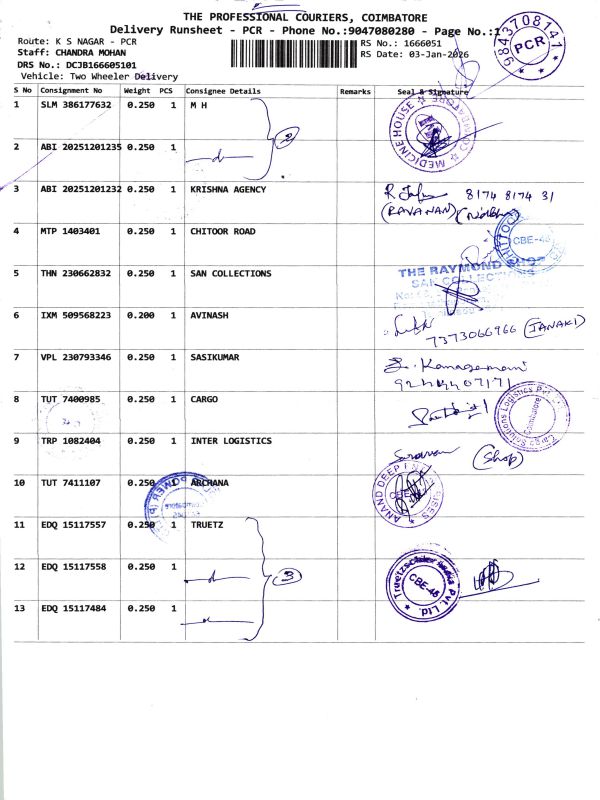 THE PROFESSIONAL COURIERS, COIMBATORE
Delivery Runsheet - PCR - Phone No.:9047080280 - Page No.:1
Route: K S NAGAR - PCR
Staff: CHANDRA MOHAN
DRS No.: DCJB166605101
Vehicle: Two Wheeler Delivery
RS No.: 1666051
RS Date: 03-Jan-2026
9843708141
PCR
S No Consignment No Weight PCS Consignee Details Remarks Seal & Signature
1 SLM 386177632 0.250 1 M H
2
MEDICINE HOUSE
2 ABI 20251201235 0.250 1
3 ABI 20251201232 0.250 1 KRISHNA AGENCY
8174 8174 31
(RAVANAN)
4 MTP 1403401 0.250 1 CHITOOR ROAD
CBE-48
5 THN 230662832 0.250 1 SAN COLLECTIONS
THE RAYMOND SHOP
SAN COLLECTIONS
6 IXM 509568223 0.200 1 AVINASH
7373066966 (JANAKI)
7 VPL 230793346 0.250 1 SASIKUMAR
8 TUT 7400985 0.250 1 CARGO
Cargo Solutions Logistics Pvt
Coimbatore
9 TRP 1082404 0.250 1 INTER LOGISTICS
(Shop)
10 TUT 7411107 0.250 1 ARCHANA
ANAND DEEP
CBE
11 EDQ 15117557 0.250 1 TRUETZ
12 EDQ 15117558 0.250 1
3
CBE-48
Pvt. Ltd.
13 EDQ 15117484 0.250 1